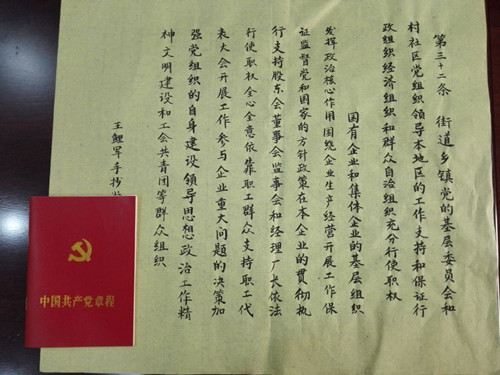 第三十二条 街道乡镇党的基层委员会和
村社区党组织领导本地区的工作支持和保证行
政组织经济组织和群众自治组织充分行使职权
国有企业和集体企业的基层组织
发挥政治核心作用围绕企业生产经营开展工作保
证监督党和国家的方针政策在本企业的贯彻执
行支持股东会董事会监事会和经理厂长依法
行使职权全心全意依靠职工群众支持职工代
表大会开展工作参与企业重大问题的决策加
强党组织的自身建设领导思想政治工作精
神文明建设和工会共青团等群众组织
王鲤军手抄
中国共产党章程